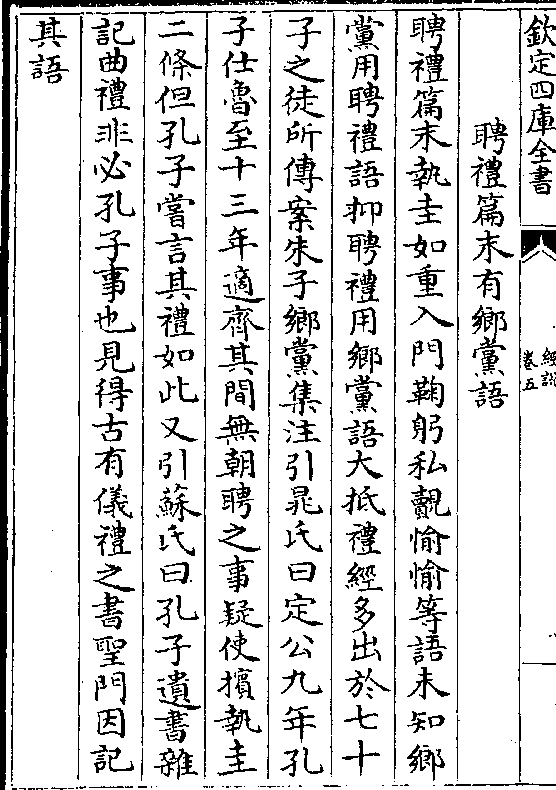 欽定四庫全書
經說
卷五
聘禮篇末有鄉黨語
聘禮篇末執圭如重入門鞠躬私覿愉愉等語未知鄉
黨用聘禮語抑聘禮用鄉黨語大抵禮經多出於七十
子之徒所傳案朱子鄉黨集注引晁氏曰定公九年孔
子仕魯至十三年適齊其間無朝聘之事疑使擯執圭
二條但孔子嘗言其禮如此又引蘇氏曰孔子遺書雜
記曲禮非必孔子事也見得古有儀禮之書聖門因記
其語